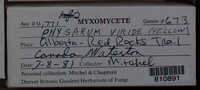 MYXOMYCETE
Acc # 1,771 Genus # 673
PHYSARUM VIRIDE (YELLOW)
Alberta - Red Rocks Trail
Canada, Waterton
7-8-81 Collector Mitchel
Personal collection: Mitchel & Chapman
Denver Botanic Gardens Herbarium of Fungi
810891